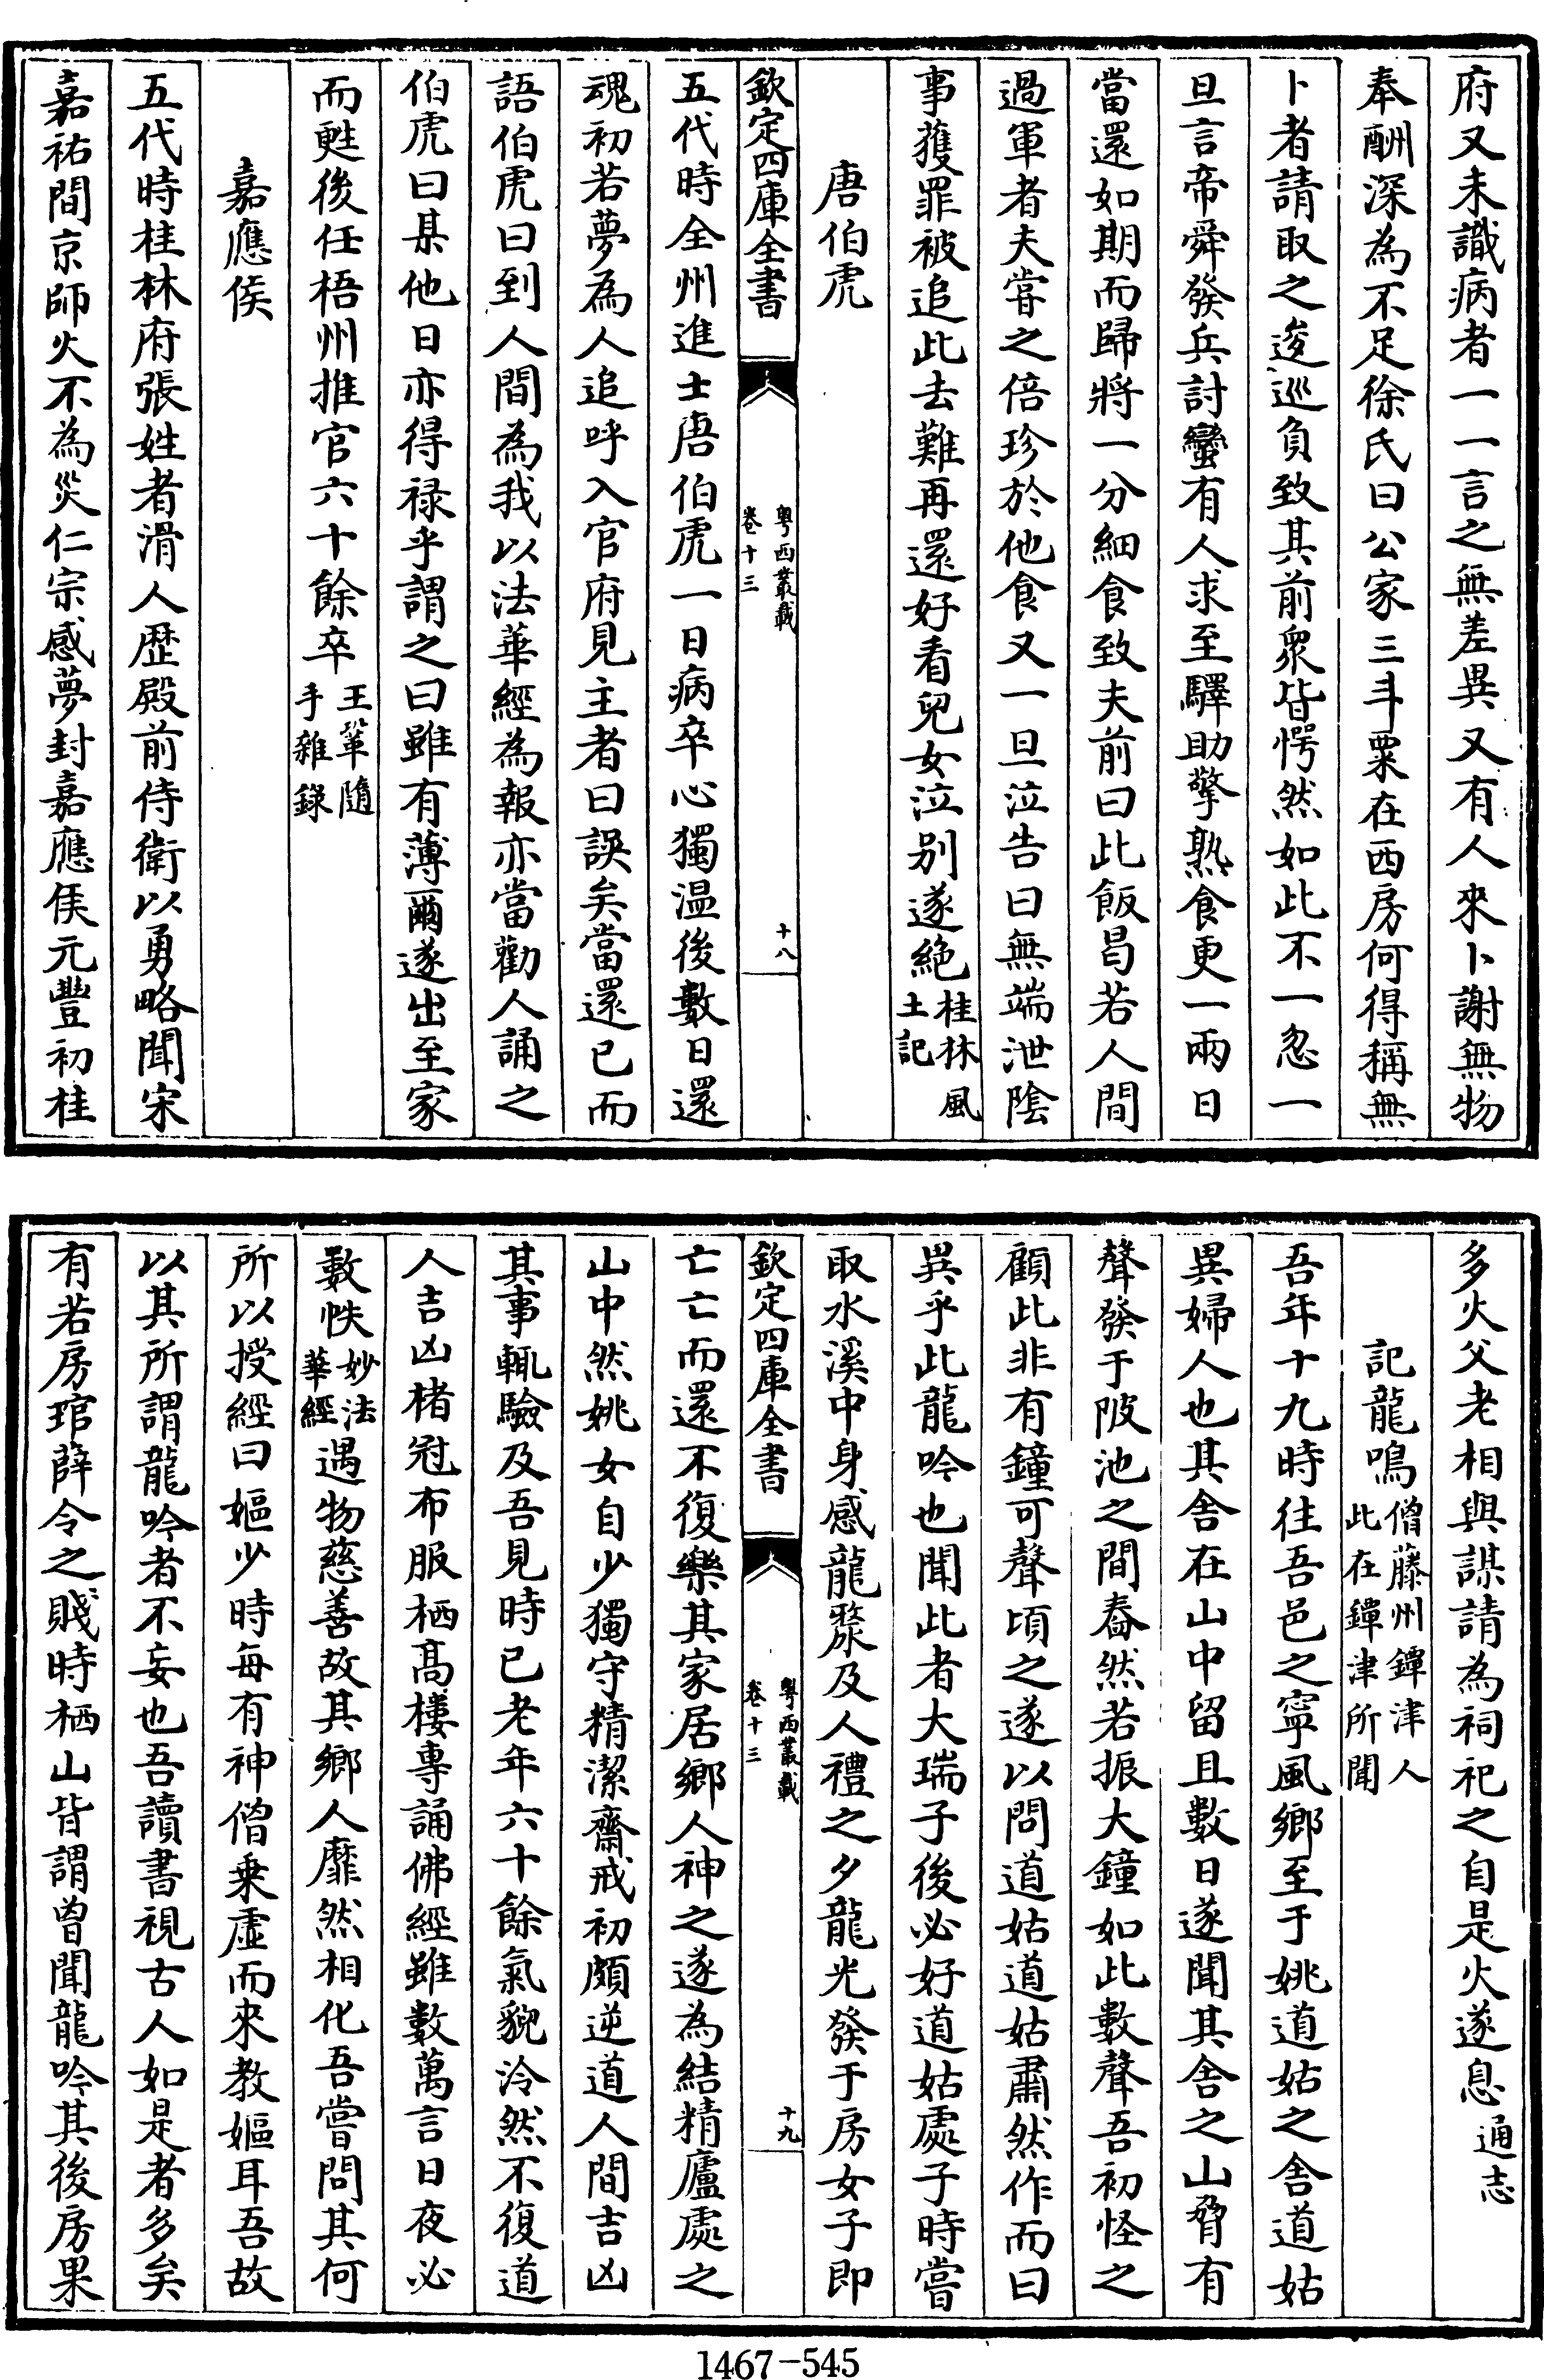 府又未識病者一一言之無差異又有人來卜謝無物
奉酬深為不足徐氏曰公家三斗粟在西房何得稱無
卜者請取之逡巡負致其前衆皆愕然如此不一忽一
旦言帝舜發兵討蠻有人求至驛助擎熟食更一兩日
當還如期而歸將一分細食致夫前曰此飯曷若人間
過軍者夫嘗之倍珍於他食又一旦泣告曰無端泄隂
事獲罪被追此去難再還好看兒女泣别遂絶桂林風土記
唐伯虎
欽定四庫全書
粤西叢載
卷十三
十八
五代時全州進士唐伯虎一日病卒心獨温後數日還
魂初若夢為人追呼入官府見主者曰誤矣當還已而
語伯虎曰到人間為我以法華經為報亦當勸人誦之
伯虎曰某他日亦得禄乎謂之曰雖有薄爾遂出至家
而甦後任梧州推官六十餘卒王鞏隨手雜錄
嘉應侯
五代時桂林府張姓者滑人歴殿前侍衛以勇略聞宋
嘉祐間京師火不為災仁宗感夢封嘉應侯元豐初桂
多火父老相與謀請為祠祀之自是火遂息通志
記龍鳴僧藤州鐔津人此在鐔津所聞
吾年十九時往吾邑之寧風鄉至于姚道姑之舍道姑
異婦人也其舍在山中留且數日遂聞其舍之山脅有
聲發于陂池之間舂然若振大鐘如此數聲吾初怪之
顧此非有鐘可聲頃之遂以問道姑道姑肅然作而曰
異乎此龍吟也聞此者大瑞子後必好道姑處子時嘗
取水溪中身感龍漦及人禮之夕龍光發于房女子即
欽定四庫全書
粤西叢載
卷十三
十九
亡亡而還不復樂其家居鄉人神之遂為結精廬處之
山中然姚女自少獨守精潔齋戒初頗逆道人間吉凶
其事輒驗及吾見時已老年六十餘氣貌泠然不復道
人吉凶楮冠布服栖髙樓專誦佛經雖數萬言日夜必
數帙妙法華經遇物慈善故其鄉人靡然相化吾嘗問其何
所以授經曰嫗少時每有神僧乘虛而來教嫗耳吾故
以其所謂龍吟者不妄也吾讀書視古人如是者多矣
有若房琯薛令之賤時栖山皆謂曾聞龍吟其後房果
1467-545